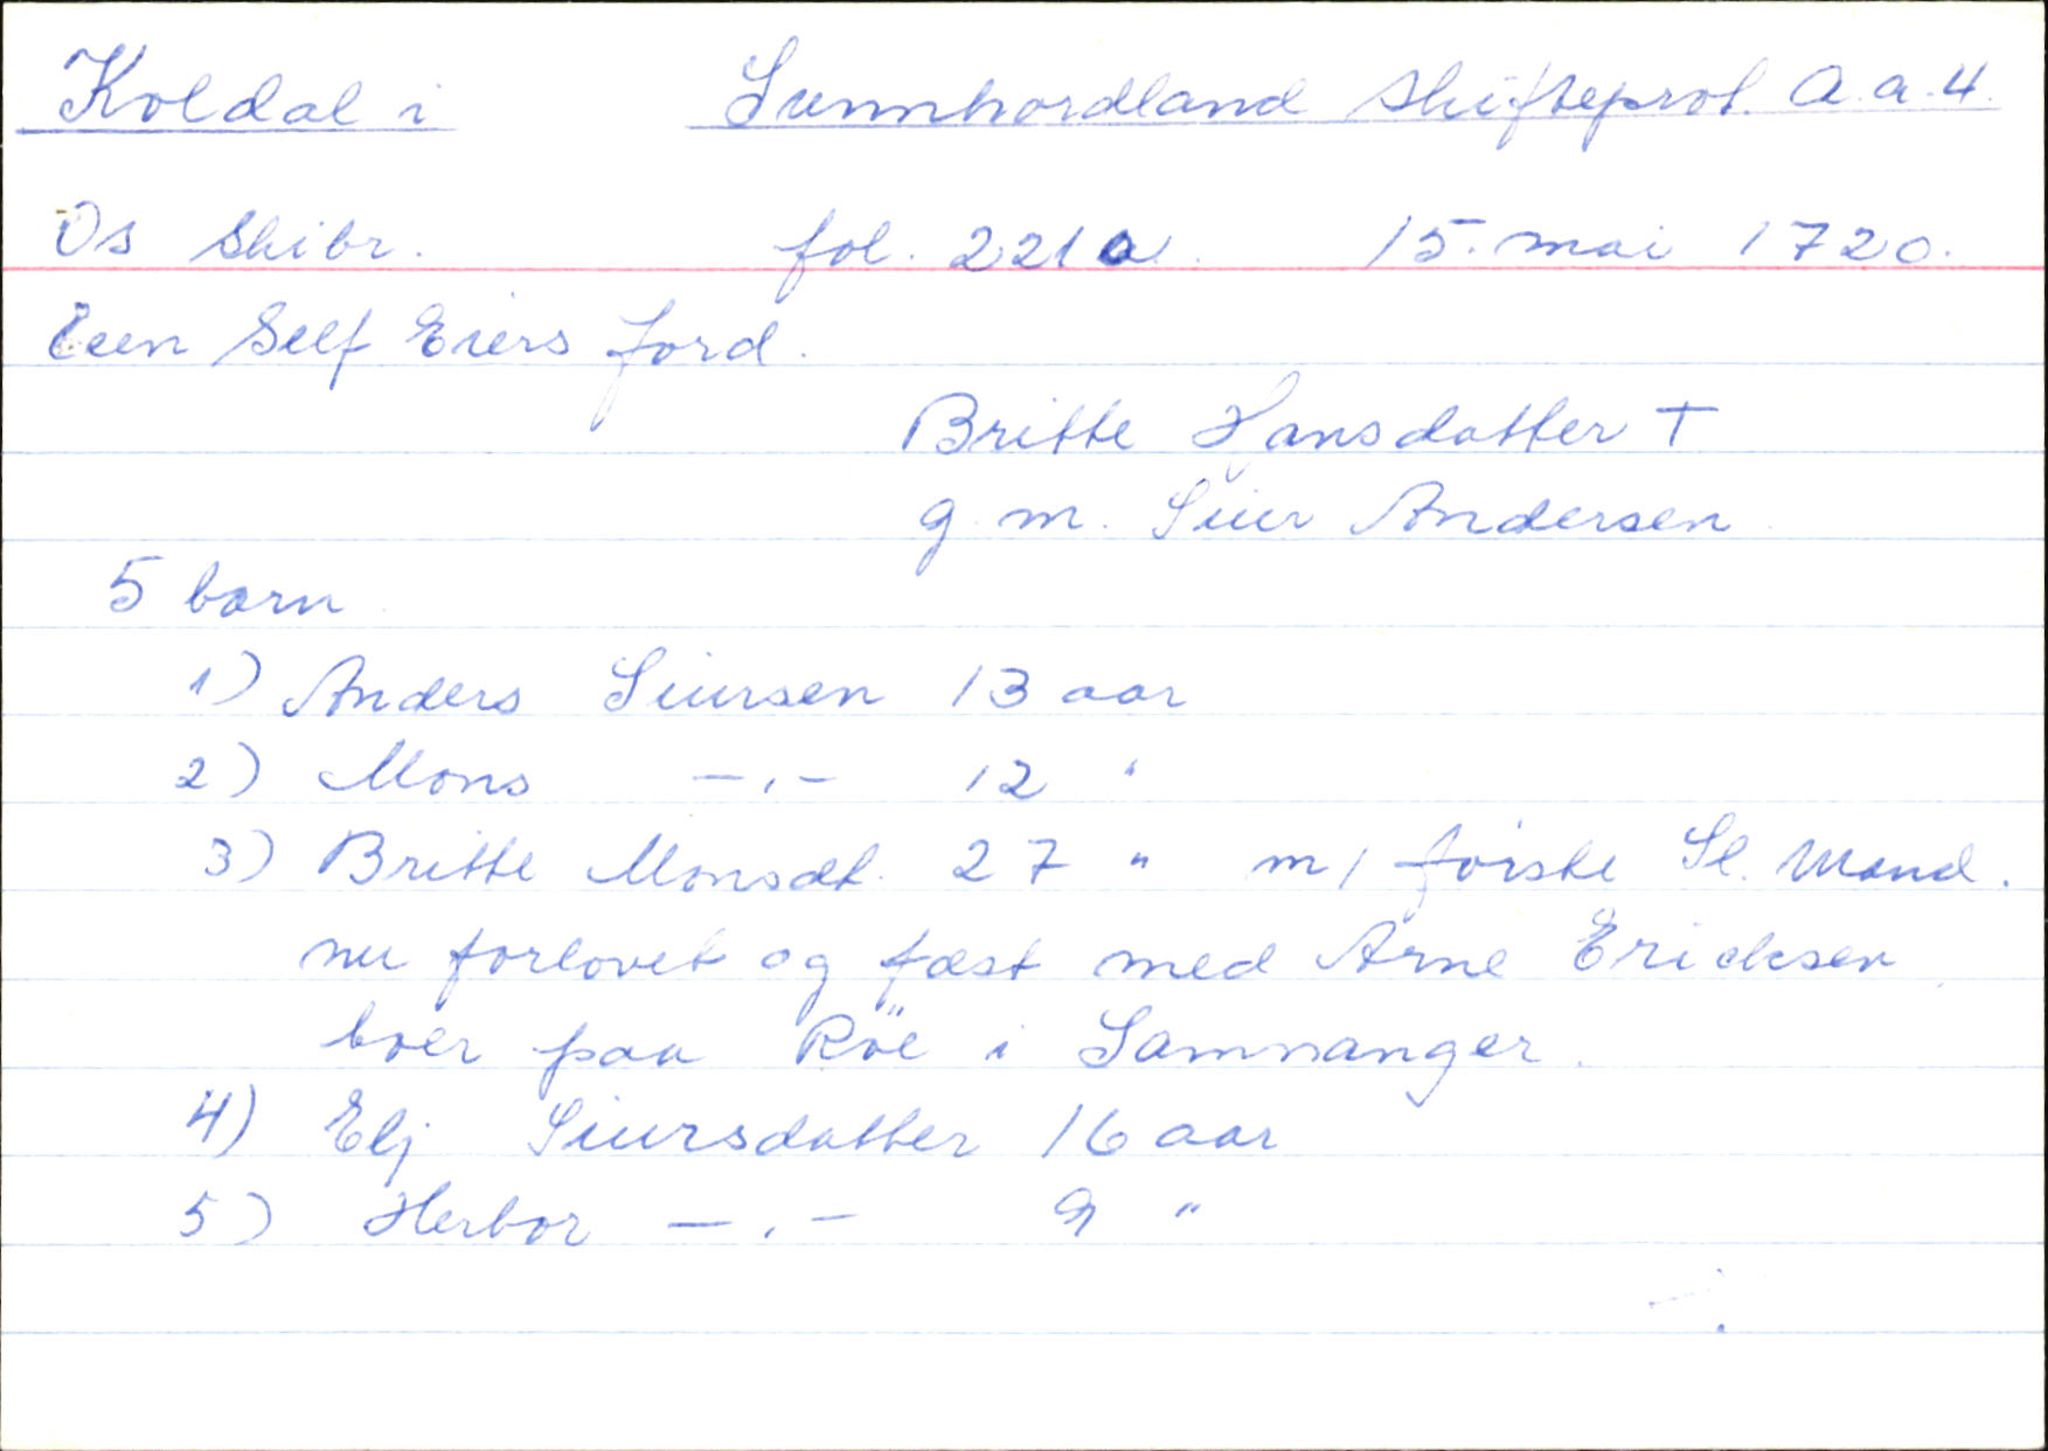 Koldal i Sunnhordland Skifteprot. A.a.4.
Os Skibr. fol. 221a. 15. mai 1720.
Een Self Eiers Jord.
Britte Hansdatter †
g. m. Siur Andersen
5 barn
1) Anders Siursen 13 aar
2) Mons —„— 12 "
3) Britte Monsdt. 27 " m/ förste Sl. Mand.
nu forlovet og fæst med Arne Ericksen,
boer paa Röe i Samnanger.
4) Elj Siursdatter 16 aar
5) Herbor —„— 9 "